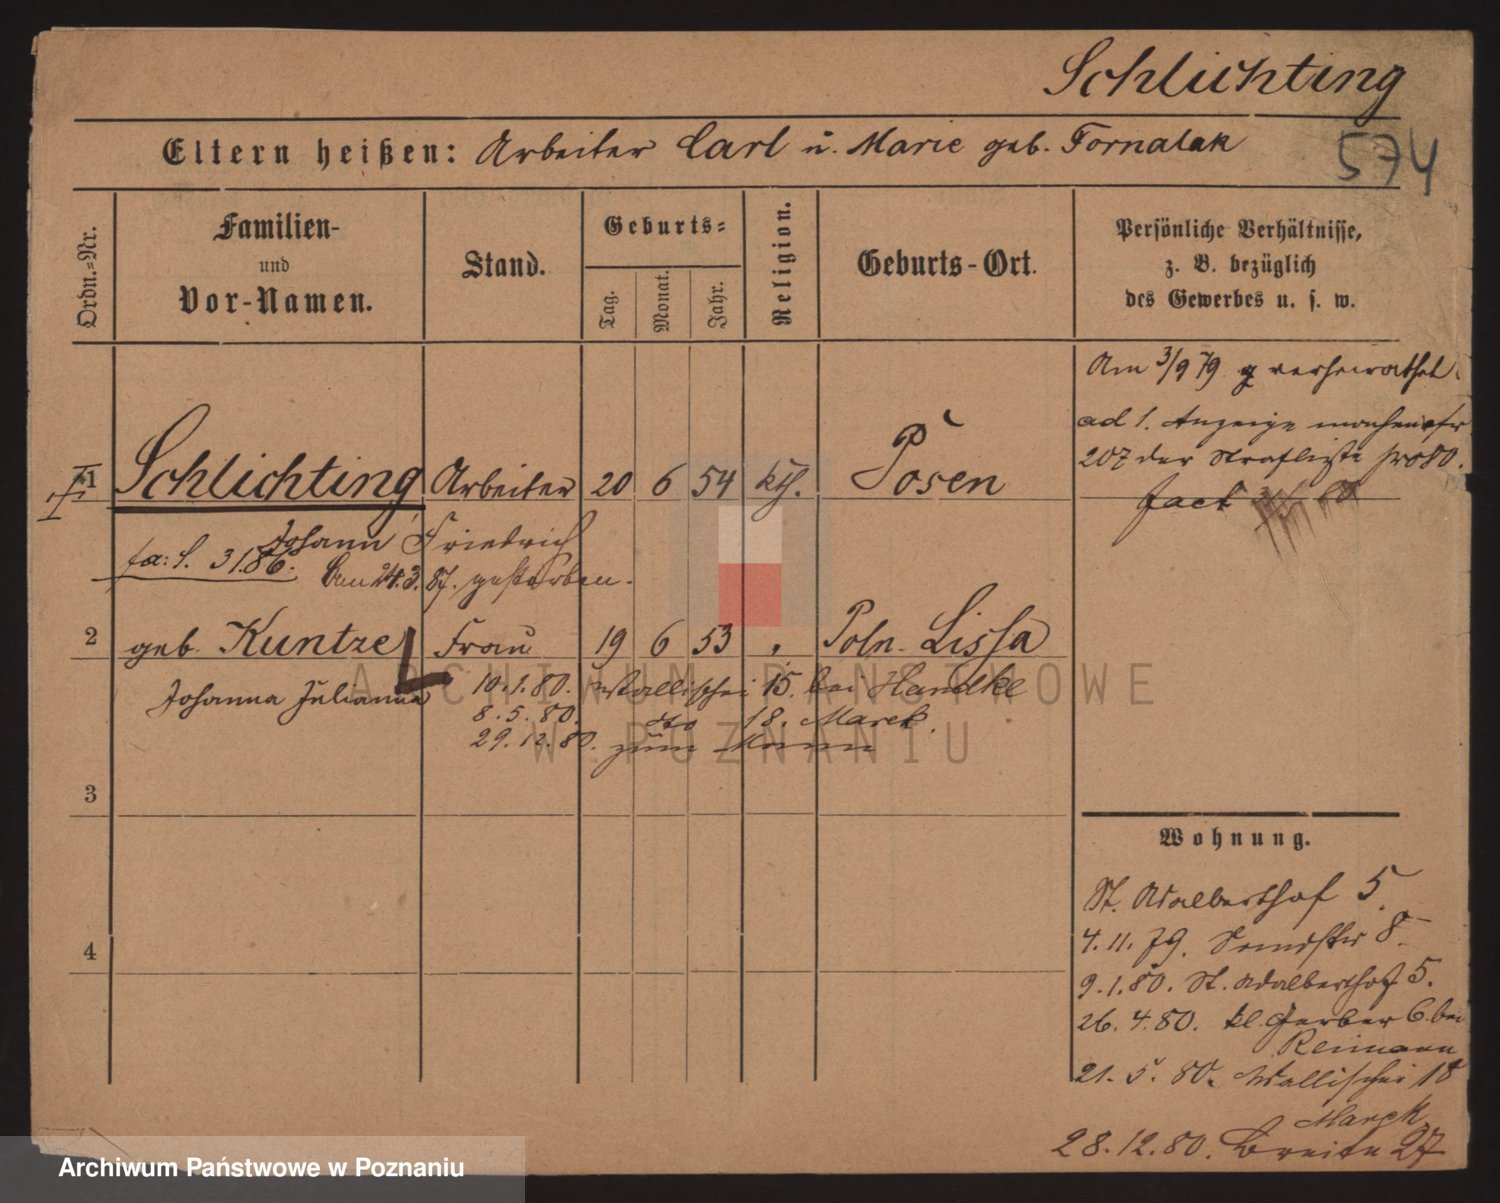 Schlichting
574
Eltern heißen: Arbeiter Carl u. Marie geb. Fornalak
Ordn.-Nr.
Familien-
und
Vor-Namen.
Stand.
Geburts-
Tag.
Monat.
Jahr.
Religion.
Geburts-Ort.
Persönliche Verhältnisse,
z. B. bezüglich
des Gewerbes u. s. w.
Am 3/9 79 verheirathet
ad 1. Anzeige machen
207 der Strafliste pro 80.
fact
1 Schlichting Arbeiter 20 6 54 kth. Posen
Johann Friedrich
fa: S. 3186. Am 24.3.87. gestorben.
2 geb. Kuntze Frau 19 6 53 Poln. Lissa
Johanna Julianna
10.1.80. Wallischei 15. bei Handke
8.5.80. dto 18. Marek.
29.12.80. zum Mann
3
4
Wohnung.
St. Adalberthof 5.
4.11.79. 8.
9.1.80. St. Adalberthof 5.
26.4.80. kl. Gerber 6. bei
Reimann
21.5.80. Wallischei 18
Marek
28.12.80. Breite 27
ARCHIWUM PAŃSTWOWE
W POZNANIU
Archiwum Państwowe w Poznaniu